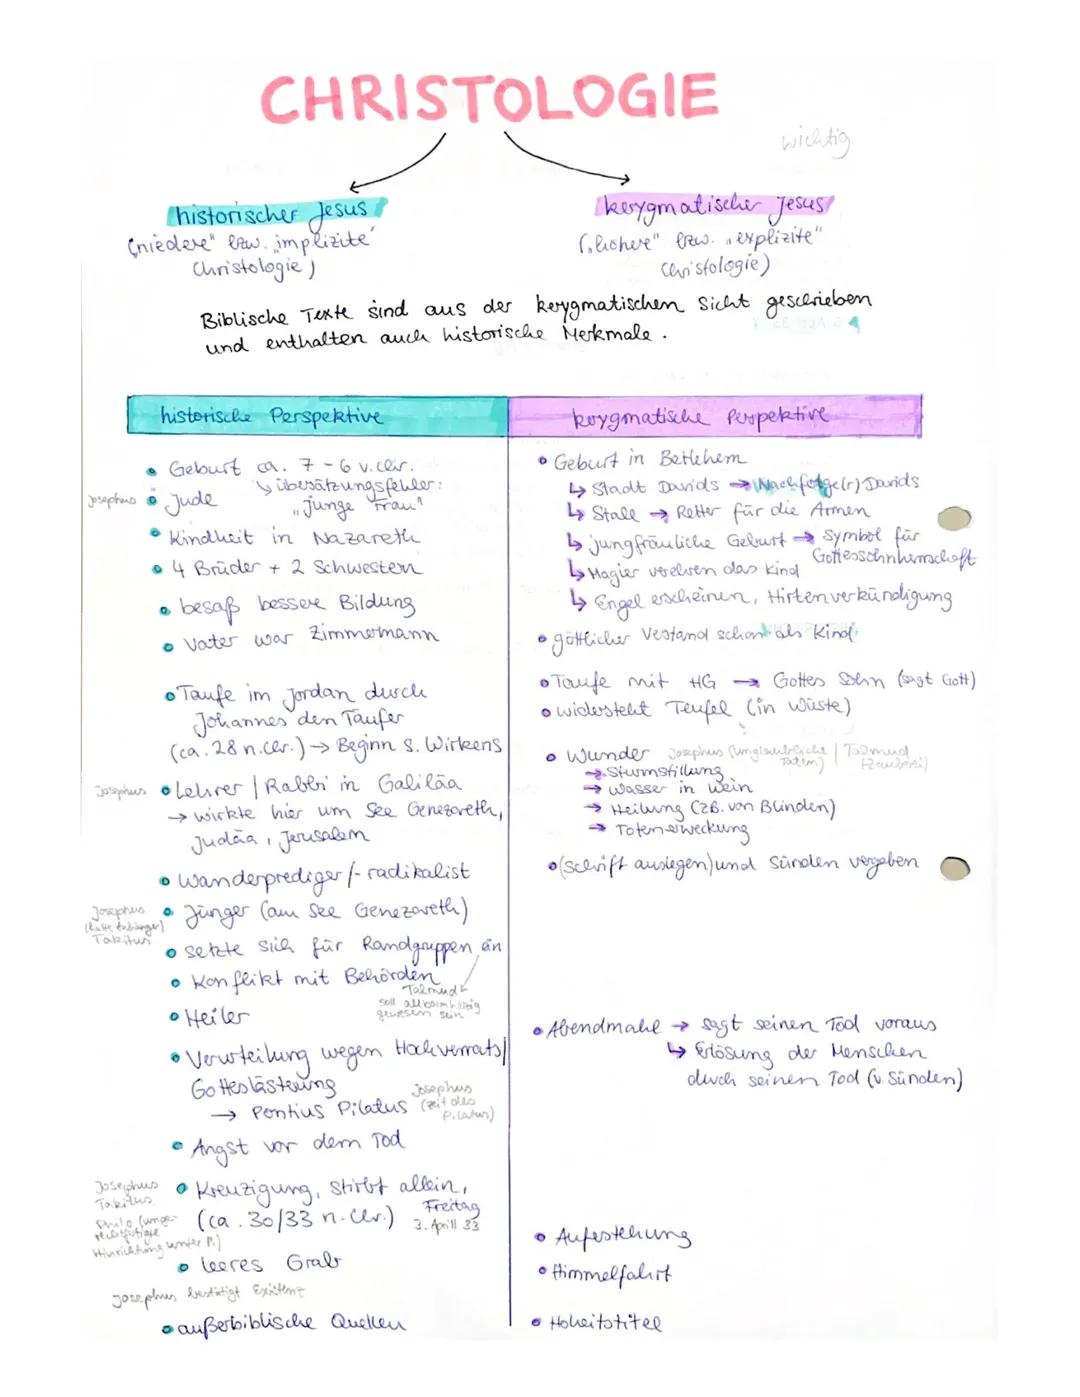 CHRISTOLOGIE
wichtig
historischer Jesus
("niedere" bzw. "implizite"
Christologie)
kerygmatischer Jesus
("höhere" bzw. "explizite"
Christologie)
Biblische Texte sind aus der kerygmatischen Sicht geschrieben
und enthalten auch historische Merkmale.
historische Perspektive
• Geburt ca. 7-6 v. Chr.
↳ übersätzungsfehler:
"junge Frau"
Josephus • Jude
• Kindheit in Nazareth
• 4 Brüder + 2 Schwestern
• besaß bessere Bildung
• Vater war Zimmermann
• Taufe im Jordan durch
Johannes den Täufer
(ca. 28 n. Chr.) → Beginn s. Wirkens
Josephus • Lehrer / Rabbi in Galiläa
→ wirkte hier um See Genezareth,
Judäa, Jerusalem
• Wanderprediger/-radikalist
Josephus
(hatte Anhänger)
Takitus
• Jünger (am See Genezareth)
• setzte sich für Randgruppen ein
• Konflikt mit Behörden
Talmud
soll allbarmherzig
gewesen sein
• Heiler
• Verurteilung wegen Hochverrats/
Gotteslästerung
→ Pontius Pilatus
Josephus
(zeit des
Pilatus)
• Angst vor dem Tod
Josephus
Takitus
Philo (unge-
rechtfertigte
Hinrichtung unter P.)
• Kreuzigung, stirbt allein,
(ca. 30/33 n. Chr.)
Freitag
3. Aprill 33
• leeres Grab
Josephus bestätigt Existenz
• außerbiblische Quellen
kerygmatische Perspektive
• Geburt in Betlehem
↳ Stadt Davids → Nachfolge(r) Davids
↳ Stall → Retter für die Armen
↳ jungfräuliche Geburt → Symbol für
Gottessohnherrschaft
↳ Magier verehren das Kind
↳ Engel erscheinen, Hirtenverkündigung
• göttlicher Verstand schon als Kind
• Taufe mit HG → Gottes Sohn (sagt Gott)
• widersteht Teufel (in Wüste)
• Wunder Josephus (unglaubliche Taten) | Talmud (Zauberei)
→ Sturmstillung
→ Wasser in Wein
→ Heilung (zB. von Blinden)
→ Totenerweckung
• (Schrift auslegen) und Sünden vergeben
• Abendmahl → sagt seinen Tod voraus
↳ Erlösung der Menschen
durch seinen Tod (v. Sünden)
• Auferstehung
• Himmelfahrt
• Hoheitstitel